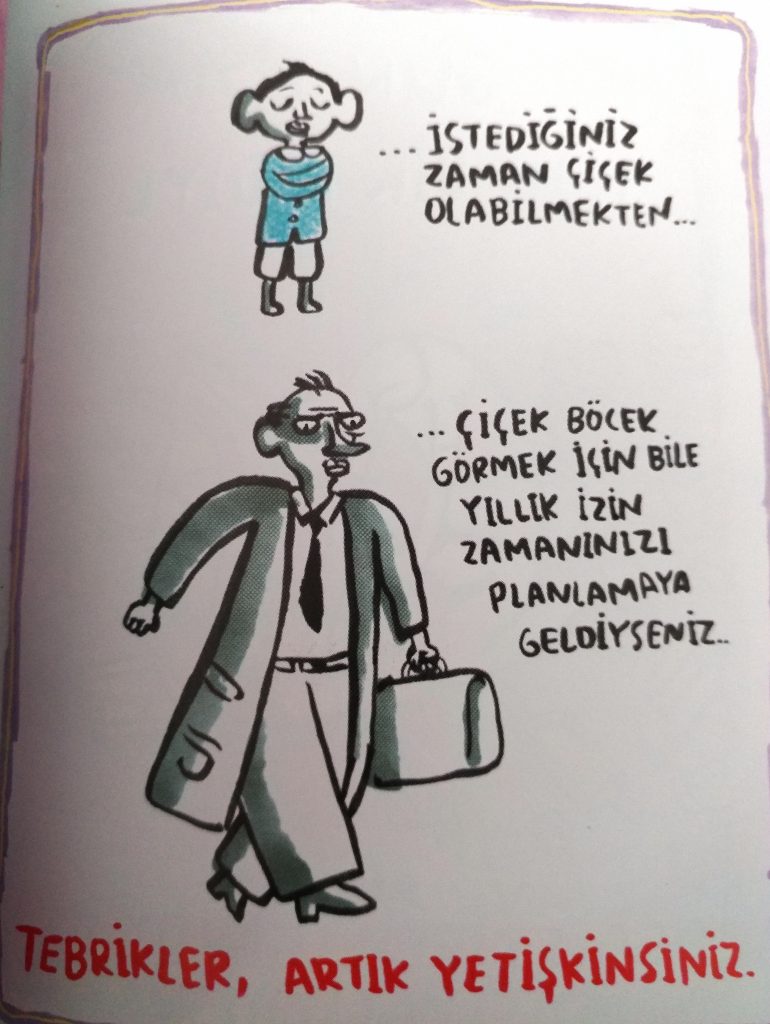 ... İSTEDİĞİNİZ
ZAMAN ÇİÇEK
OLABİLMEKTEN...
... ÇİÇEK BÖCEK
GÖRMEK İÇİN BİLE
YILLIK İZİN
ZAMANINIZI
PLANLAMAYA
GELDİYSENİZ..
TEBRİKLER, ARTIK YETİŞKİNSİNİZ.